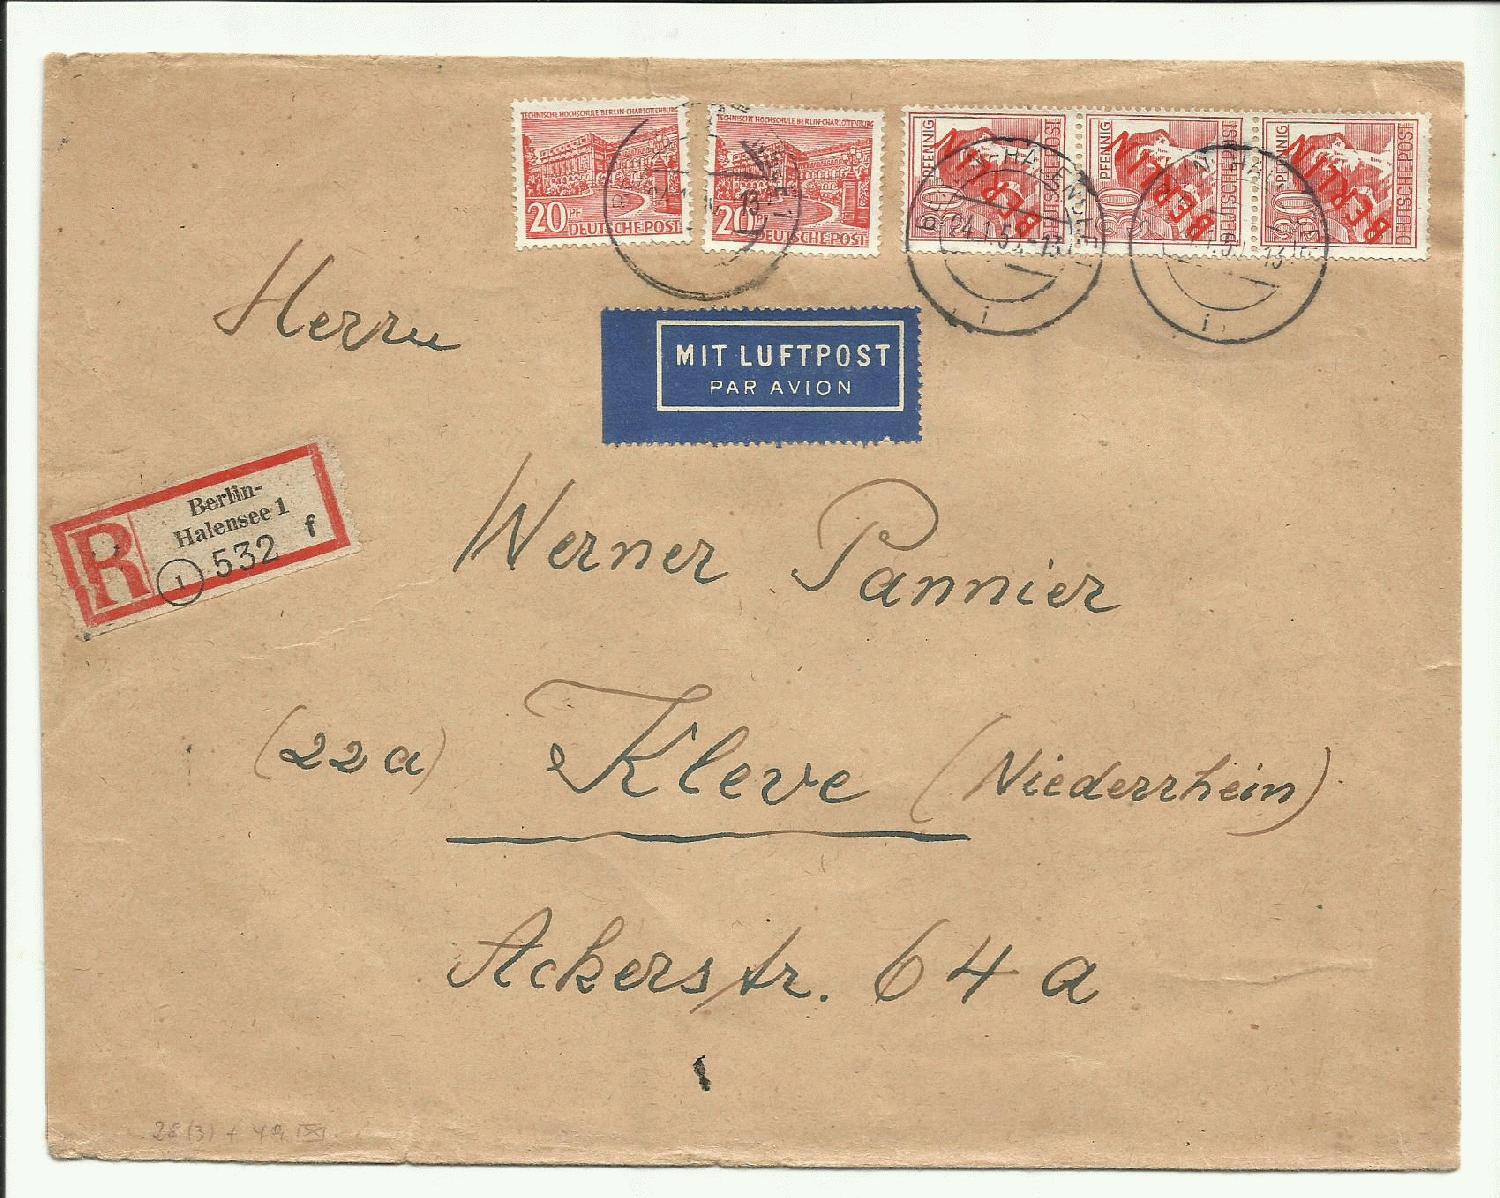 TECHNISCHE HOCHSCHULE BERLIN-CHARLOTTENBURG
20 PF
DEUTSCHE POST
TECHNISCHE HOCHSCHULE BERLIN-CHARLOTTENBURG
20 PF
DEUTSCHE POST
PFENNIG
BERLIN
DEUTSCHE POST
PFENNIG
BERLIN
DEUTSCHE POST
PFENNIG
BERLIN
DEUTSCHE POST
Herrn
MIT LUFTPOST
PAR AVION
R
Berlin-
Halensee 1
1 532 f
Werner Pannier
(22a) Kleve (Niederrhein)
Ackerstr. 64 a